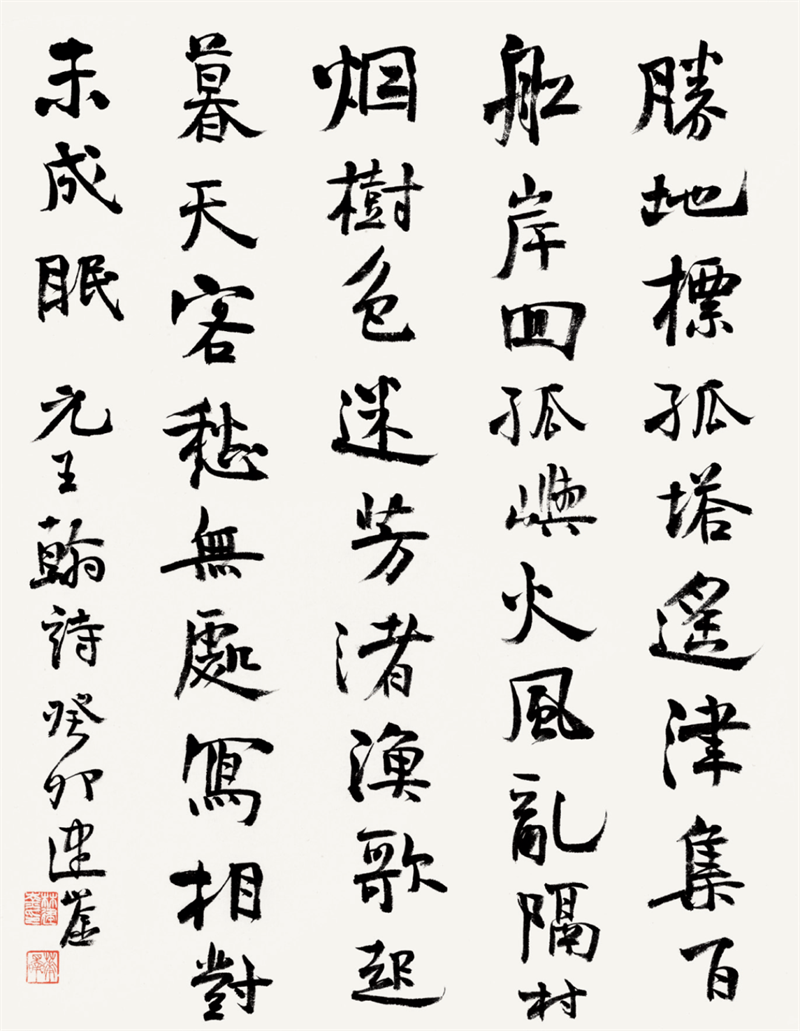 勝地標孤塔遙津集百
船岸回孤嶼火風亂隔村
烟樹色迷芳渚漁歌起
暮天客愁無處寫相對
未成眠 元王翰詩癸卯建